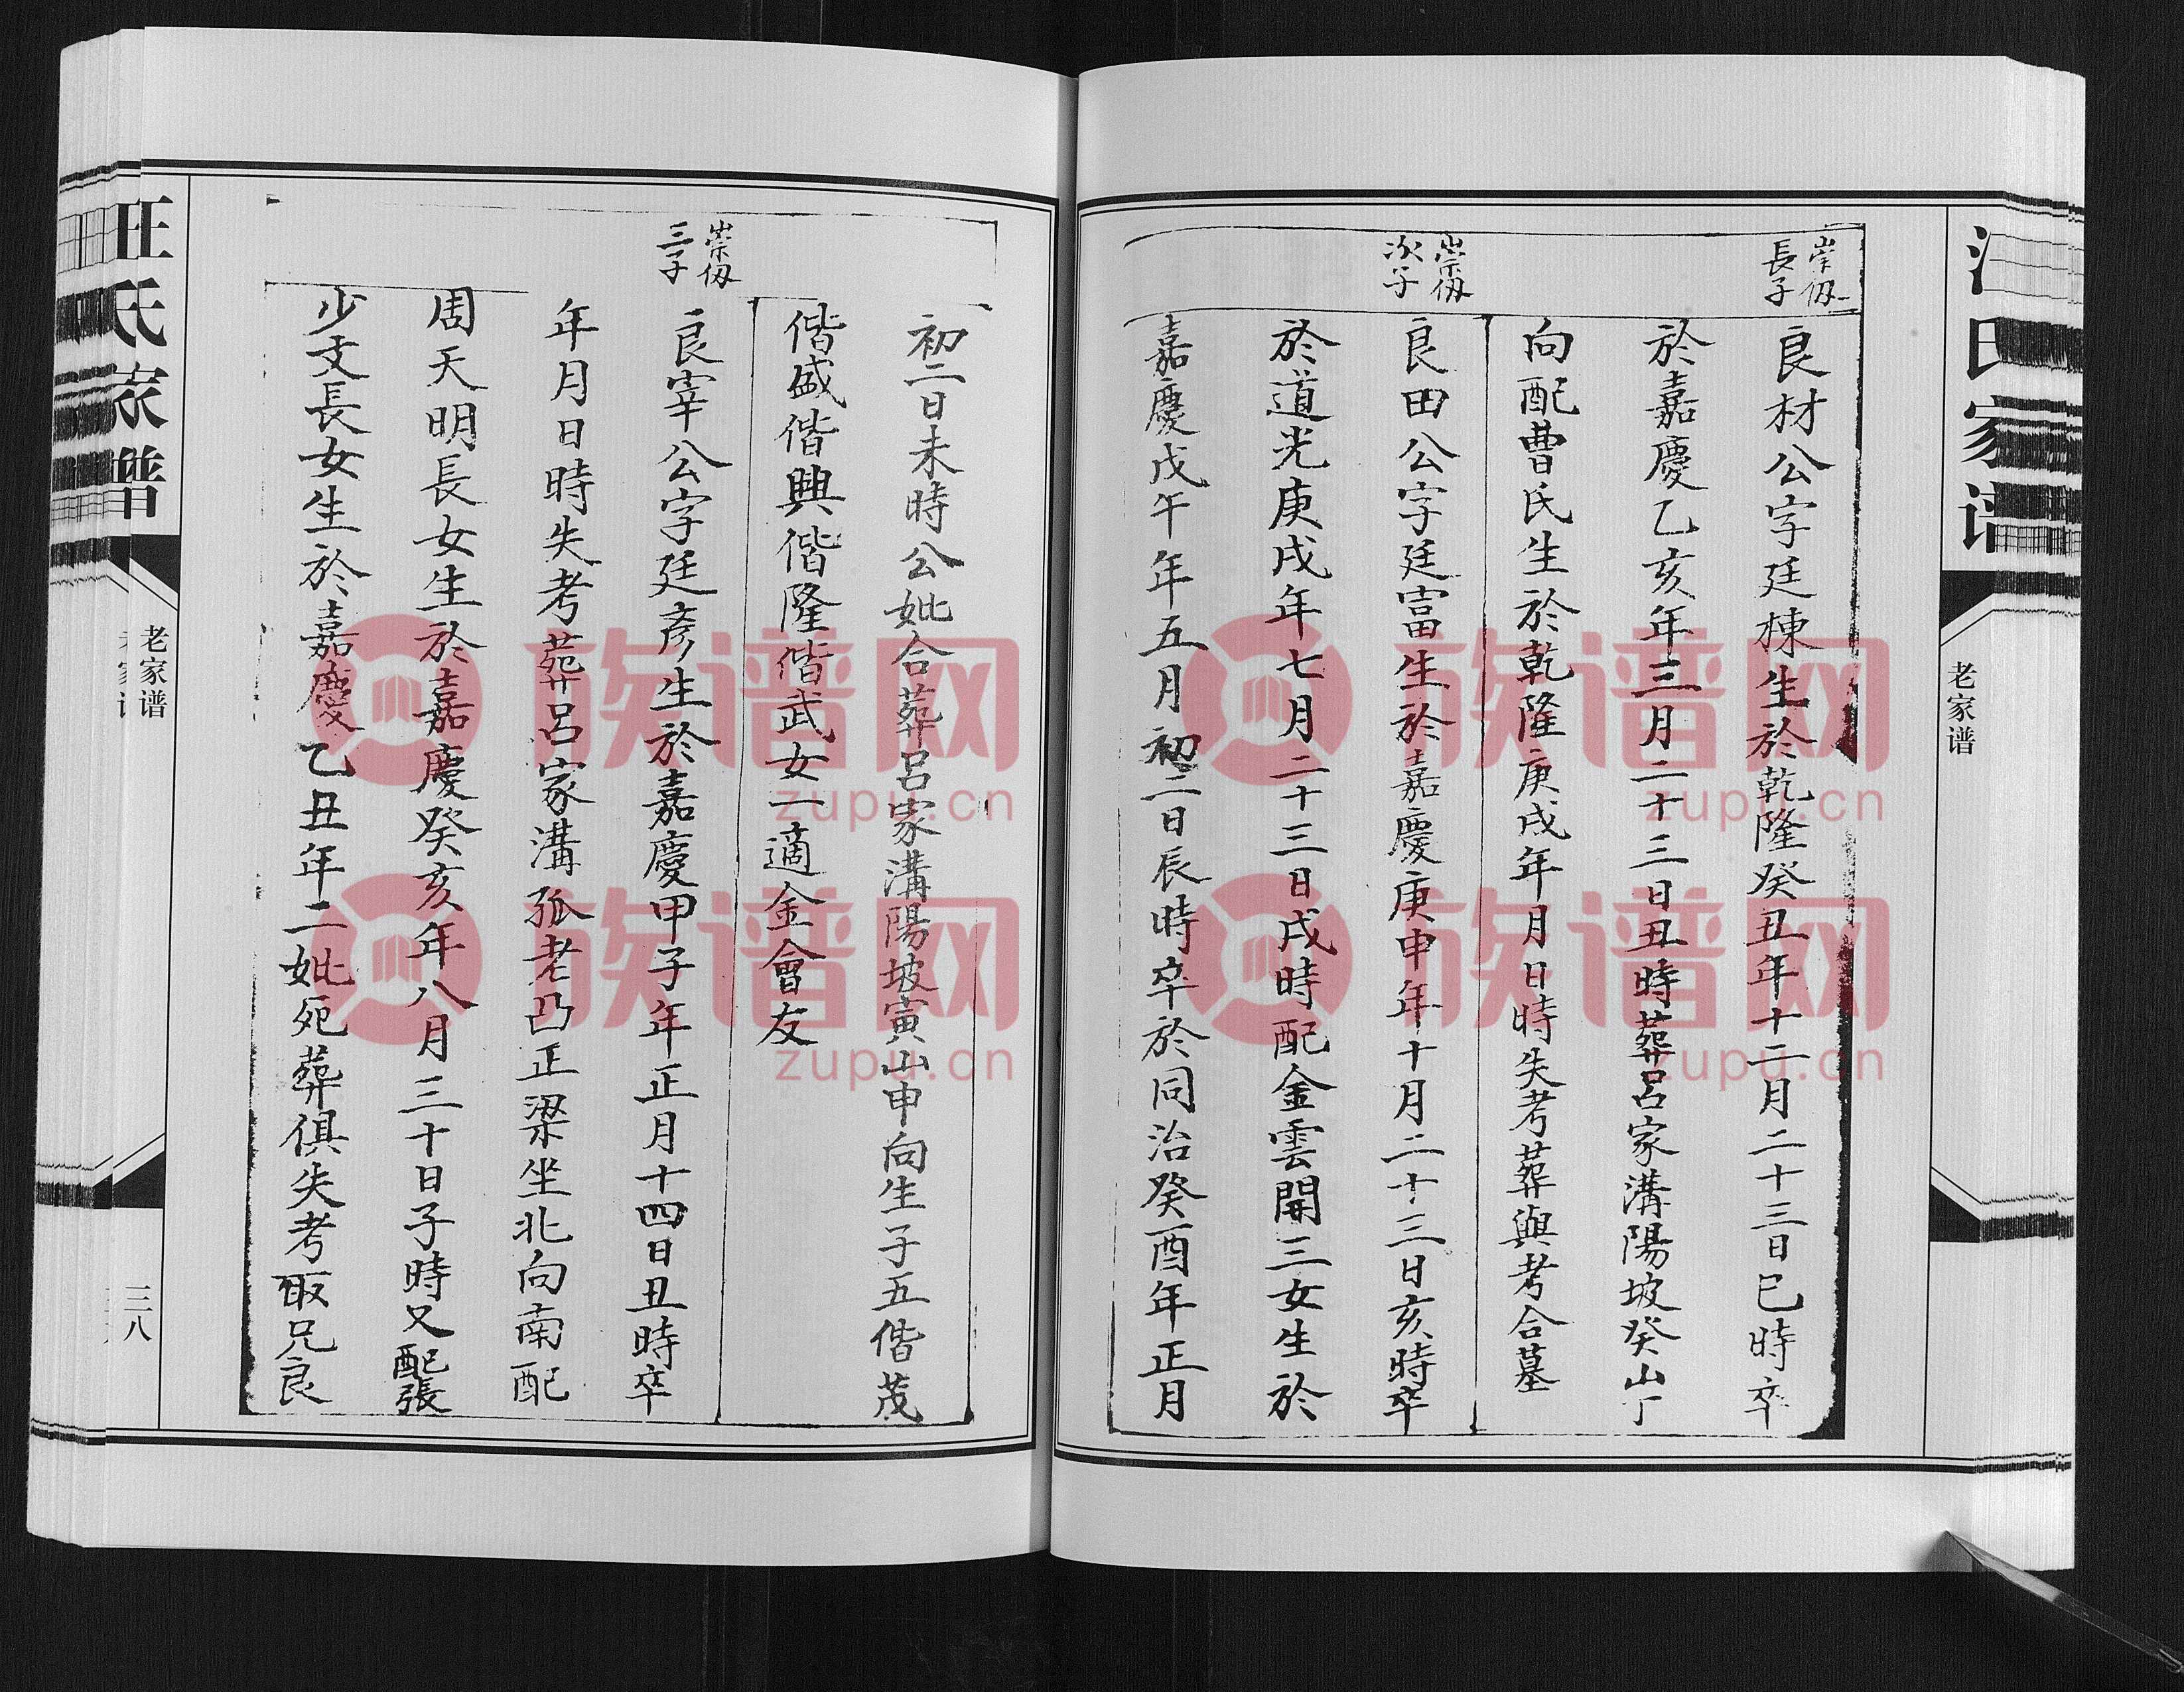 崇仞
長子
良材公字廷棟生於乾隆癸丑年十二月二十三日巳時卒
於嘉慶乙亥年三月二十三日丑時葬呂家溝陽坡癸山丁
向配曹氏生於乾隆庚戌年月日時失考葬與考合墓
崇仞
次子
良田公字廷富生於嘉慶庚申年十月二十三日亥時卒
於道光庚戌年七月二十三日戌時配金雲開三女生於
嘉慶戊午年五月初二日辰時卒於同治癸酉年正月
初二日未時公妣合葬呂家溝陽坡寅山申向生子五偕茂
偕盛偕興偕隆偕武女一適金會友
崇仞
三子
良宰公字廷彥生於嘉慶甲子年正月十四日丑時卒
年月日時失考葬呂家溝孤老凸正梁坐北向南配
周天明長女生於嘉慶癸亥年八月三十日子時又配張
少文長女生於嘉慶乙丑年二妣死葬俱失考取兄良
汪氏家谱
老家谱
汪氏家谱
老家谱
三八
族谱网
zupu.cn
族谱网
zupu.cn
族谱网
zupu.cn
族谱网
zupu.cn